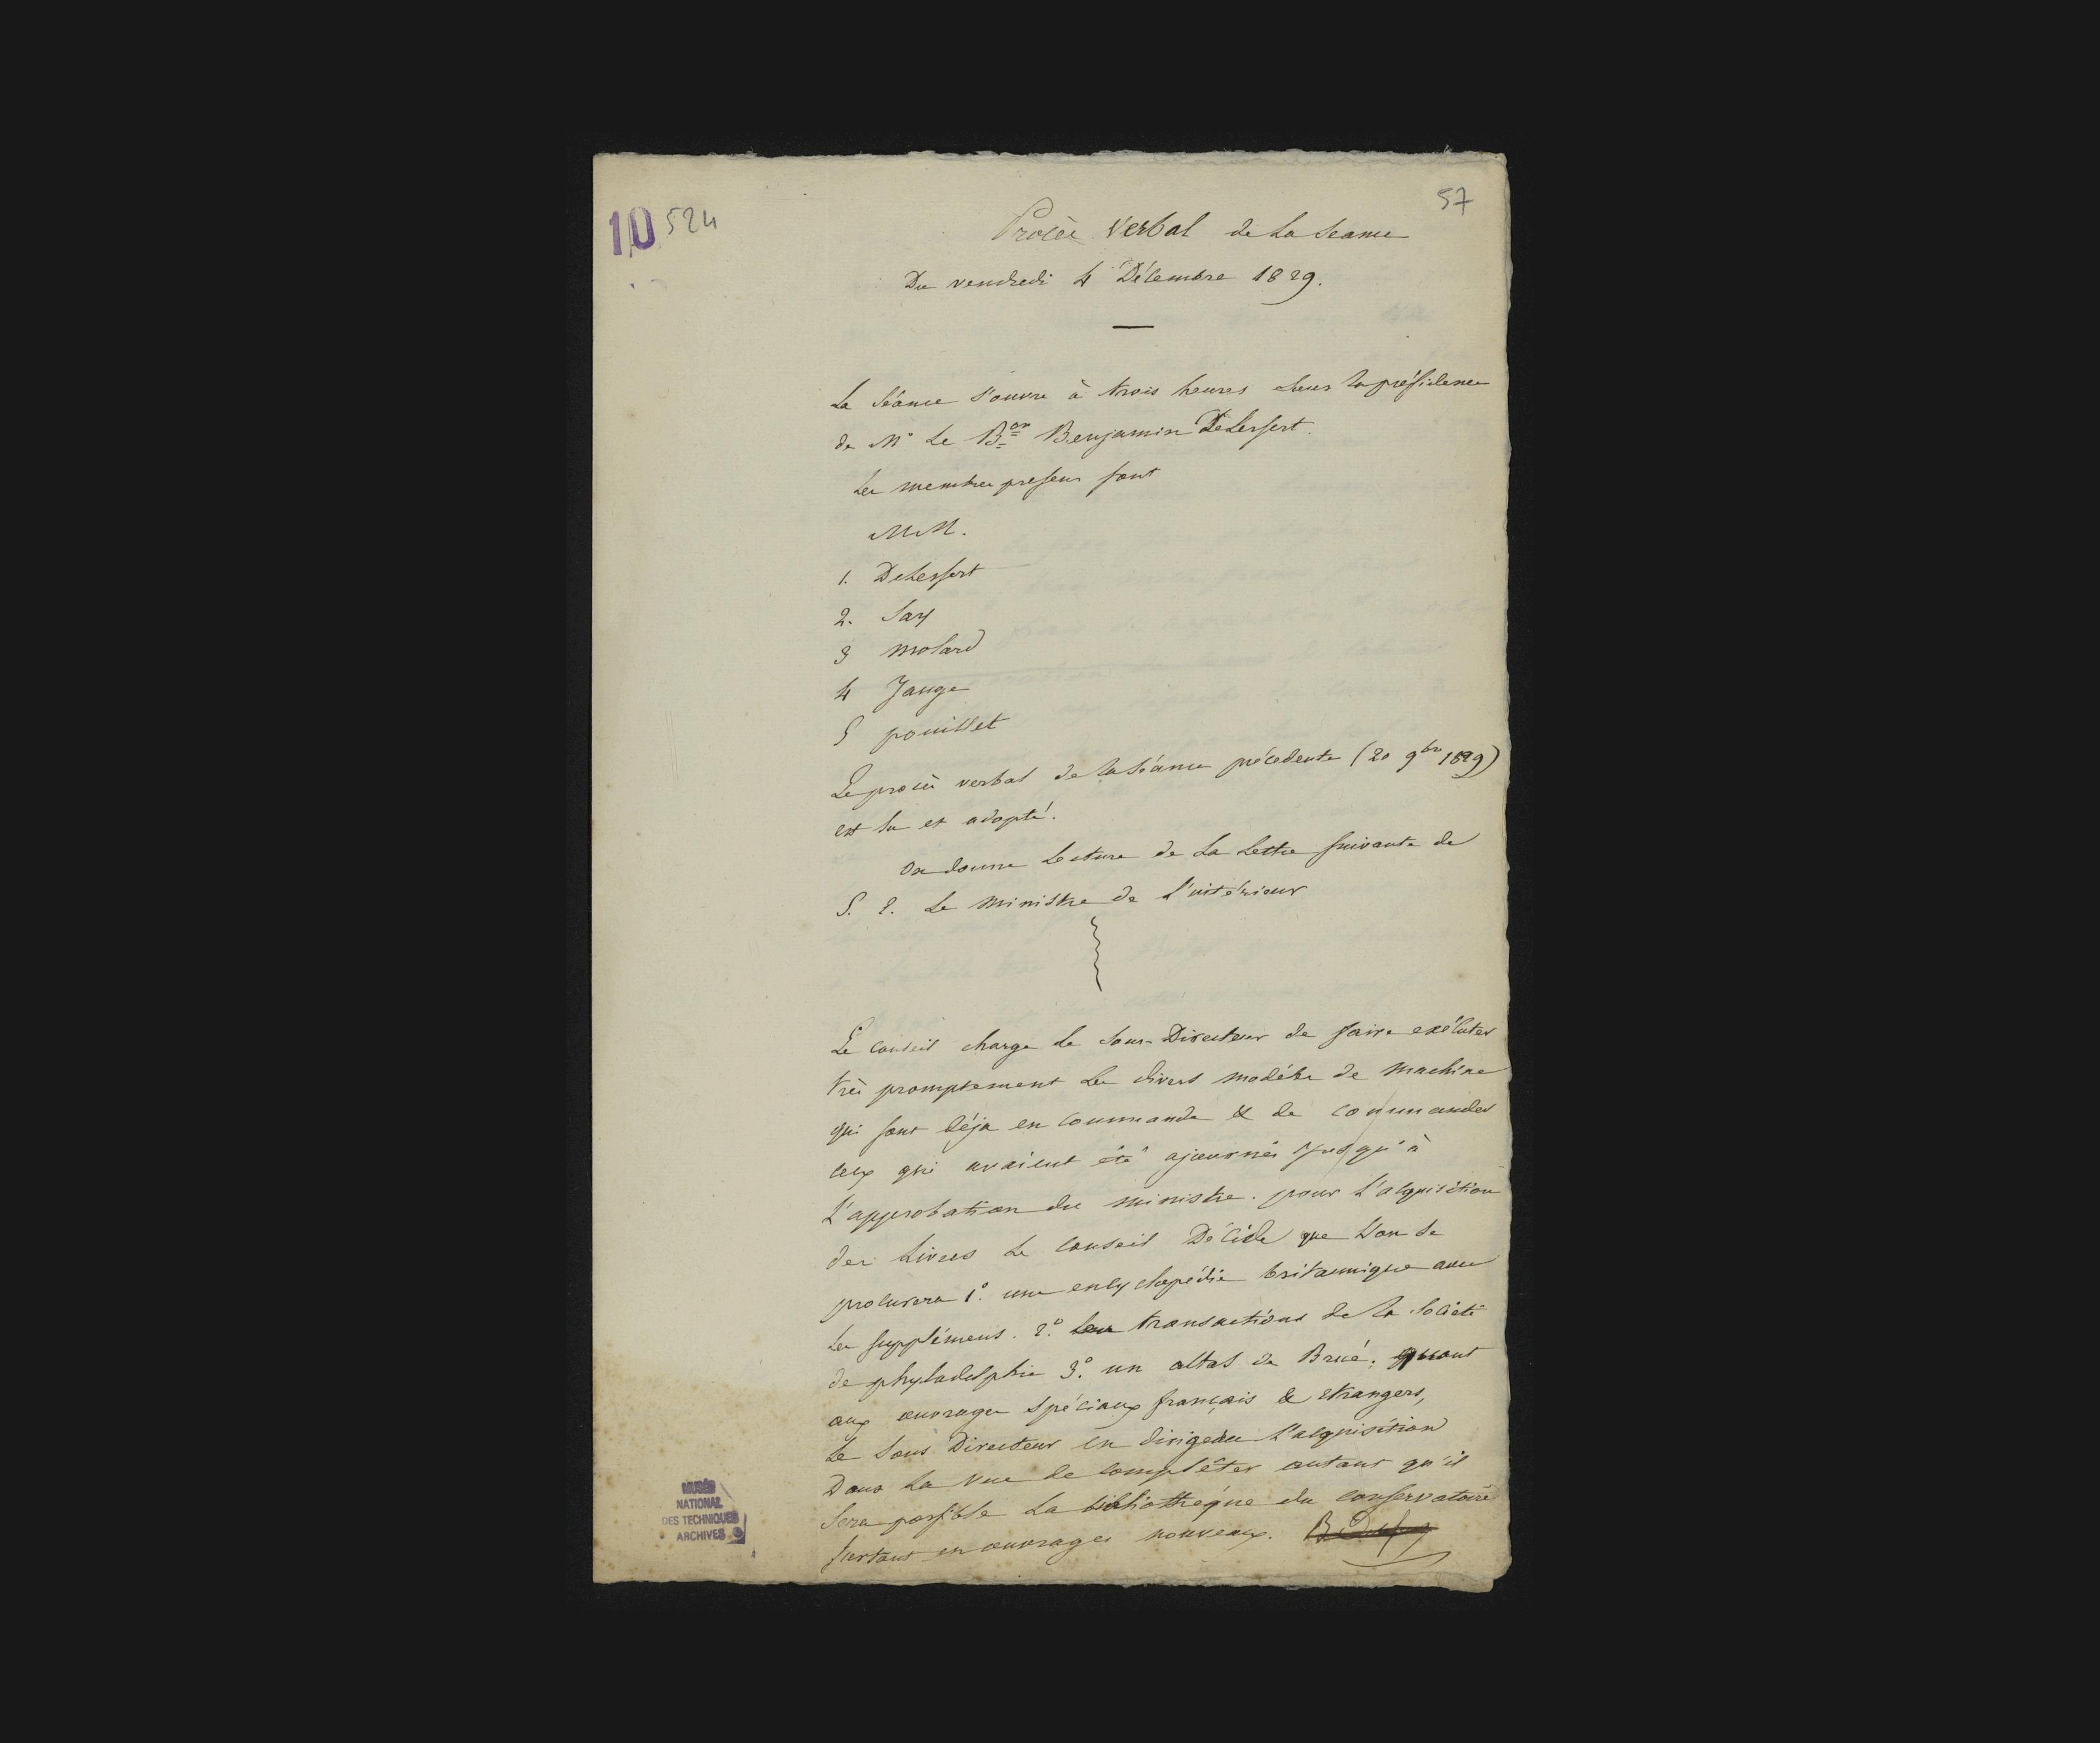 57
10 524
Procès Verbal de la Seance
Du vendredi 4 Décembre 1829.
La séance s'ouvre à trois heures sous la présidence
de Mr Le Bon Benjamin Delessert.
les membres presens sont
MM.
1. Delessert
2. Say
3 molard
4 Jauge
5 pouillet
Le procès verbal de la séance précedente (20 9bre 1829)
est lu et adopté.
On donne lecture de la lettre suivante de
S. E. le ministre de l'intérieur
Le conseil charge le Sous-Directeur de faire exécuter
très promptement les divers modèles de machine
qui sont déja en commande & de commander
ceux qui avaient été ajournés jusqu'à
l'approbation du ministre. pour l'acquisition
des livres le conseil Décide que l'on se
procurera 1° une encyclopédie britannique avec
les supplémens. 2° les transactions de la société
de phyladelphie 3° un altas de Brué. quant
aux ouvrages spéciaux français & etrangers,
le Sous Directeur en dirigera l'acquisition
Dans la vue de complêter autant qu'il
sera possible la bibliothèque du conservatoire
surtout en ouvrages nouveaux.
MUSÉE
NATIONAL
DES TECHNIQUES
ARCHIVES